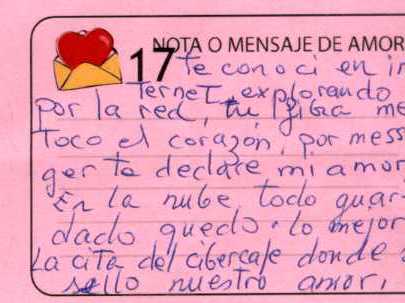 NOTA O MENSAJE DE AMOR
17 te conoci en in
TerneT, explorando
por la red, tu página me
Toco el corazón, por mess
ger te declare mi amor
En la nube todo guar
dado quedo. lo mejor
La ciTa del cibercafe donde s
sello nuestro amor,